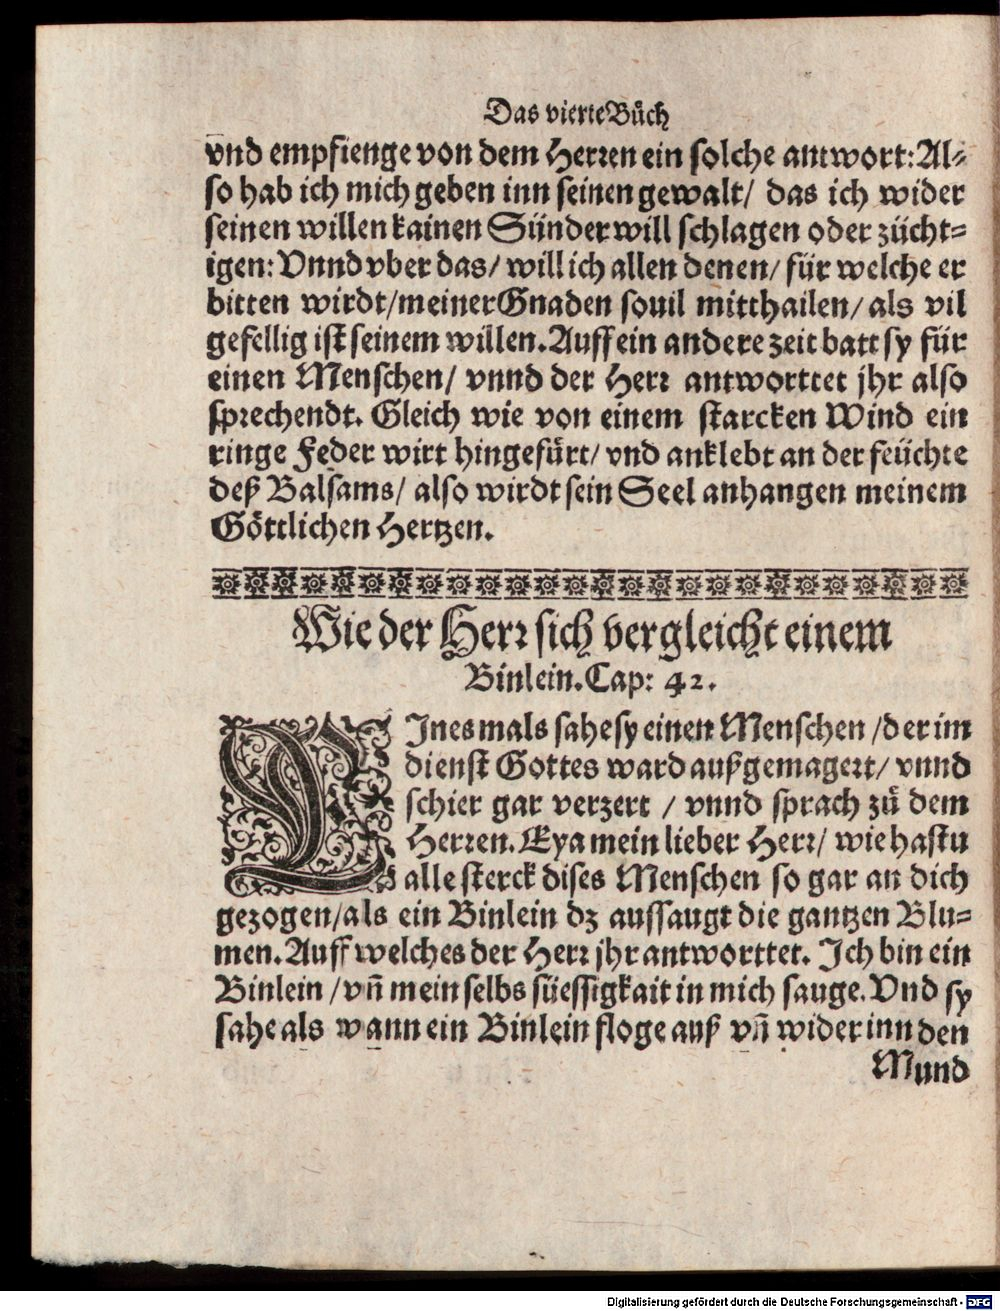 Das vierte Bůch
vnd empfienge von dem Herren ein solche antwort: Al-
so hab ich mich geben inn seinen gewalt/ das ich wider
seinen willen kainen Sünder will schlagen oder zücht-
igen: Vnnd vber das/ will ich allen denen/ für welche er
bitten wirdt/ meiner Gnaden souil mitthailen/ als vil
gefellig ist seinem willen. Auff ein andere zeit batt sy für
einen Menschen/ vnnd der Herr antworttet jhr also
sprechendt. Gleich wie von einem starcken Wind ein
ringe Feder wirt hingefürt/ vnd anklebt an der feüchte
deß Balsams/ also wirdt sein Seel anhangen meinem
Göttlichen Hertzen.
Wie der Herr sich vergleicht einem
Binlein. Cap: 42.
EInes mals sahe sy einen Menschen/ der im
dienst Gottes ward außgemagert/ vnnd
schier gar verzert / vnnd sprach zů dem
Herren. Eya mein lieber Herr/ wie hastu
alle sterck dises Menschen so gar an dich
gezogen/ als ein Binlein dz aussaugt die gantzen Blu-
men. Auff welches der Herr jhr antworttet. Ich bin ein
Binlein / vñ mein selbs süessigkait in mich sauge. Vnd sy
sahe als wann ein Binlein floge auß vñ wider inn den
Mund
Digitalisierung gefördert durch die Deutsche Forschungsgemeinschaft - DFG